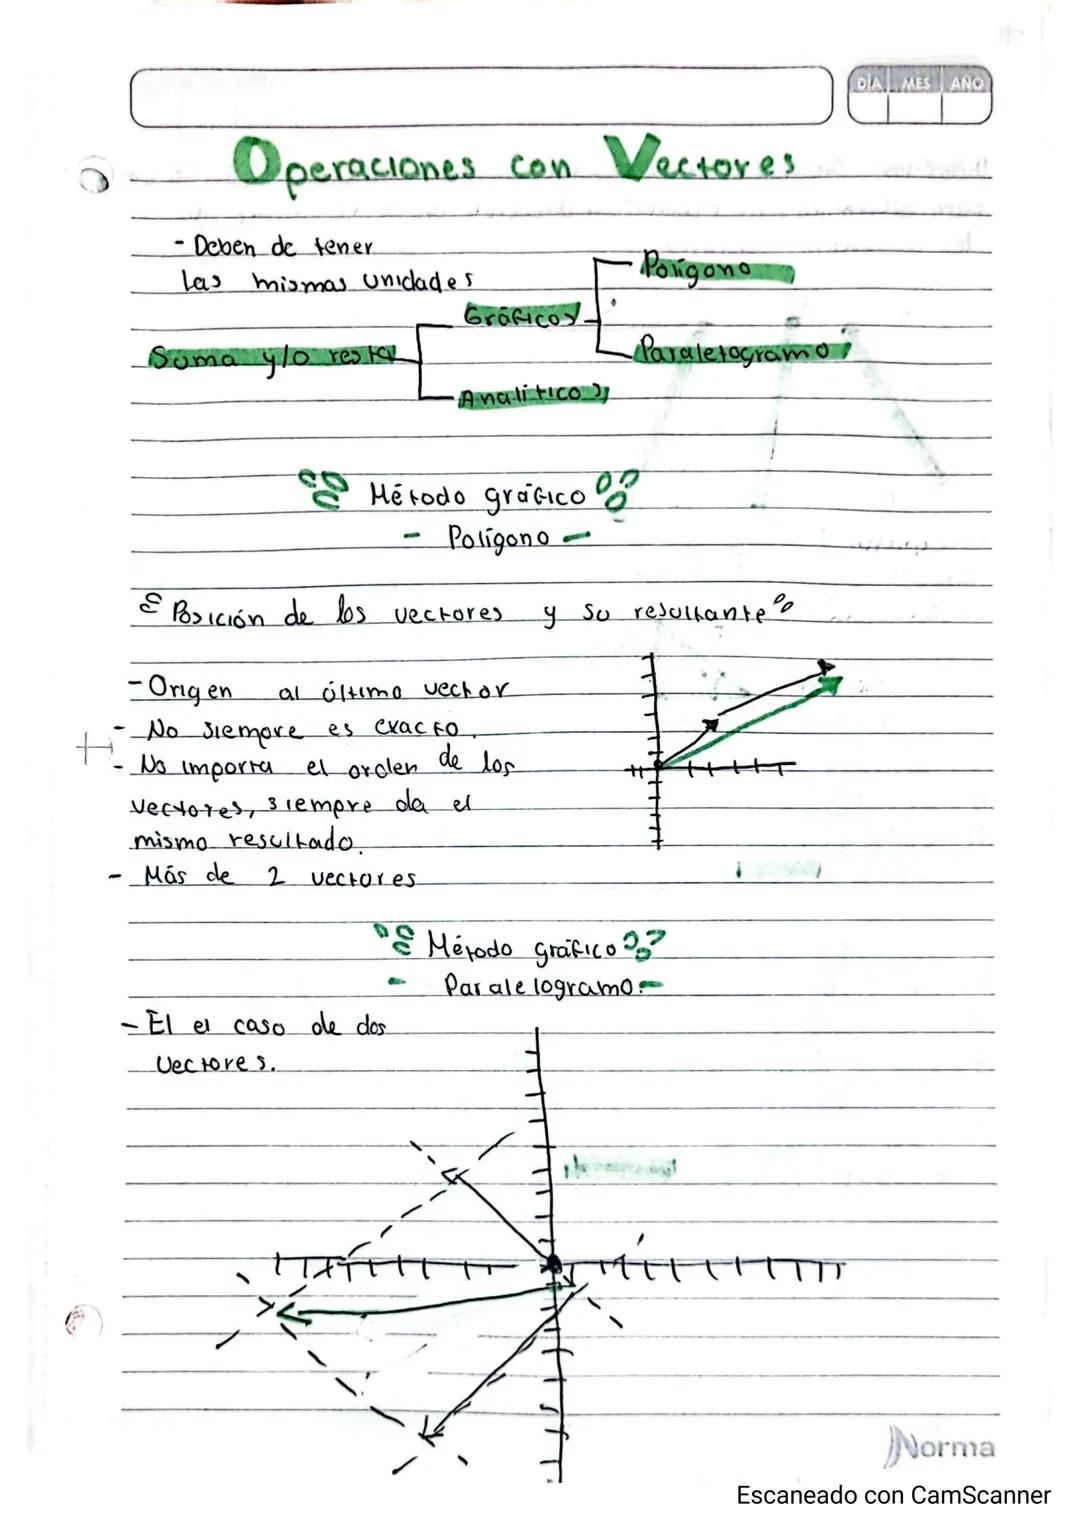 DÍA MES AÑO
Operaciones con Vectores
- Deben de tener
las mismas unidades
Polígono
Gráficos
Suma y/o resta
Paralelogramo
Analíticos
Método gráfico
- Polígono -
Posición de los vectores y su resultante
- Origen al último vector
- No siempre es exacto.
- No importa el orden de los
vectores, siempre da el
mismo resultado.
- Más de 2 vectores
Método gráfico
- Paralelogramo. -
- El el caso de dos
vectores.
Norma
Escaneado con CamScanner